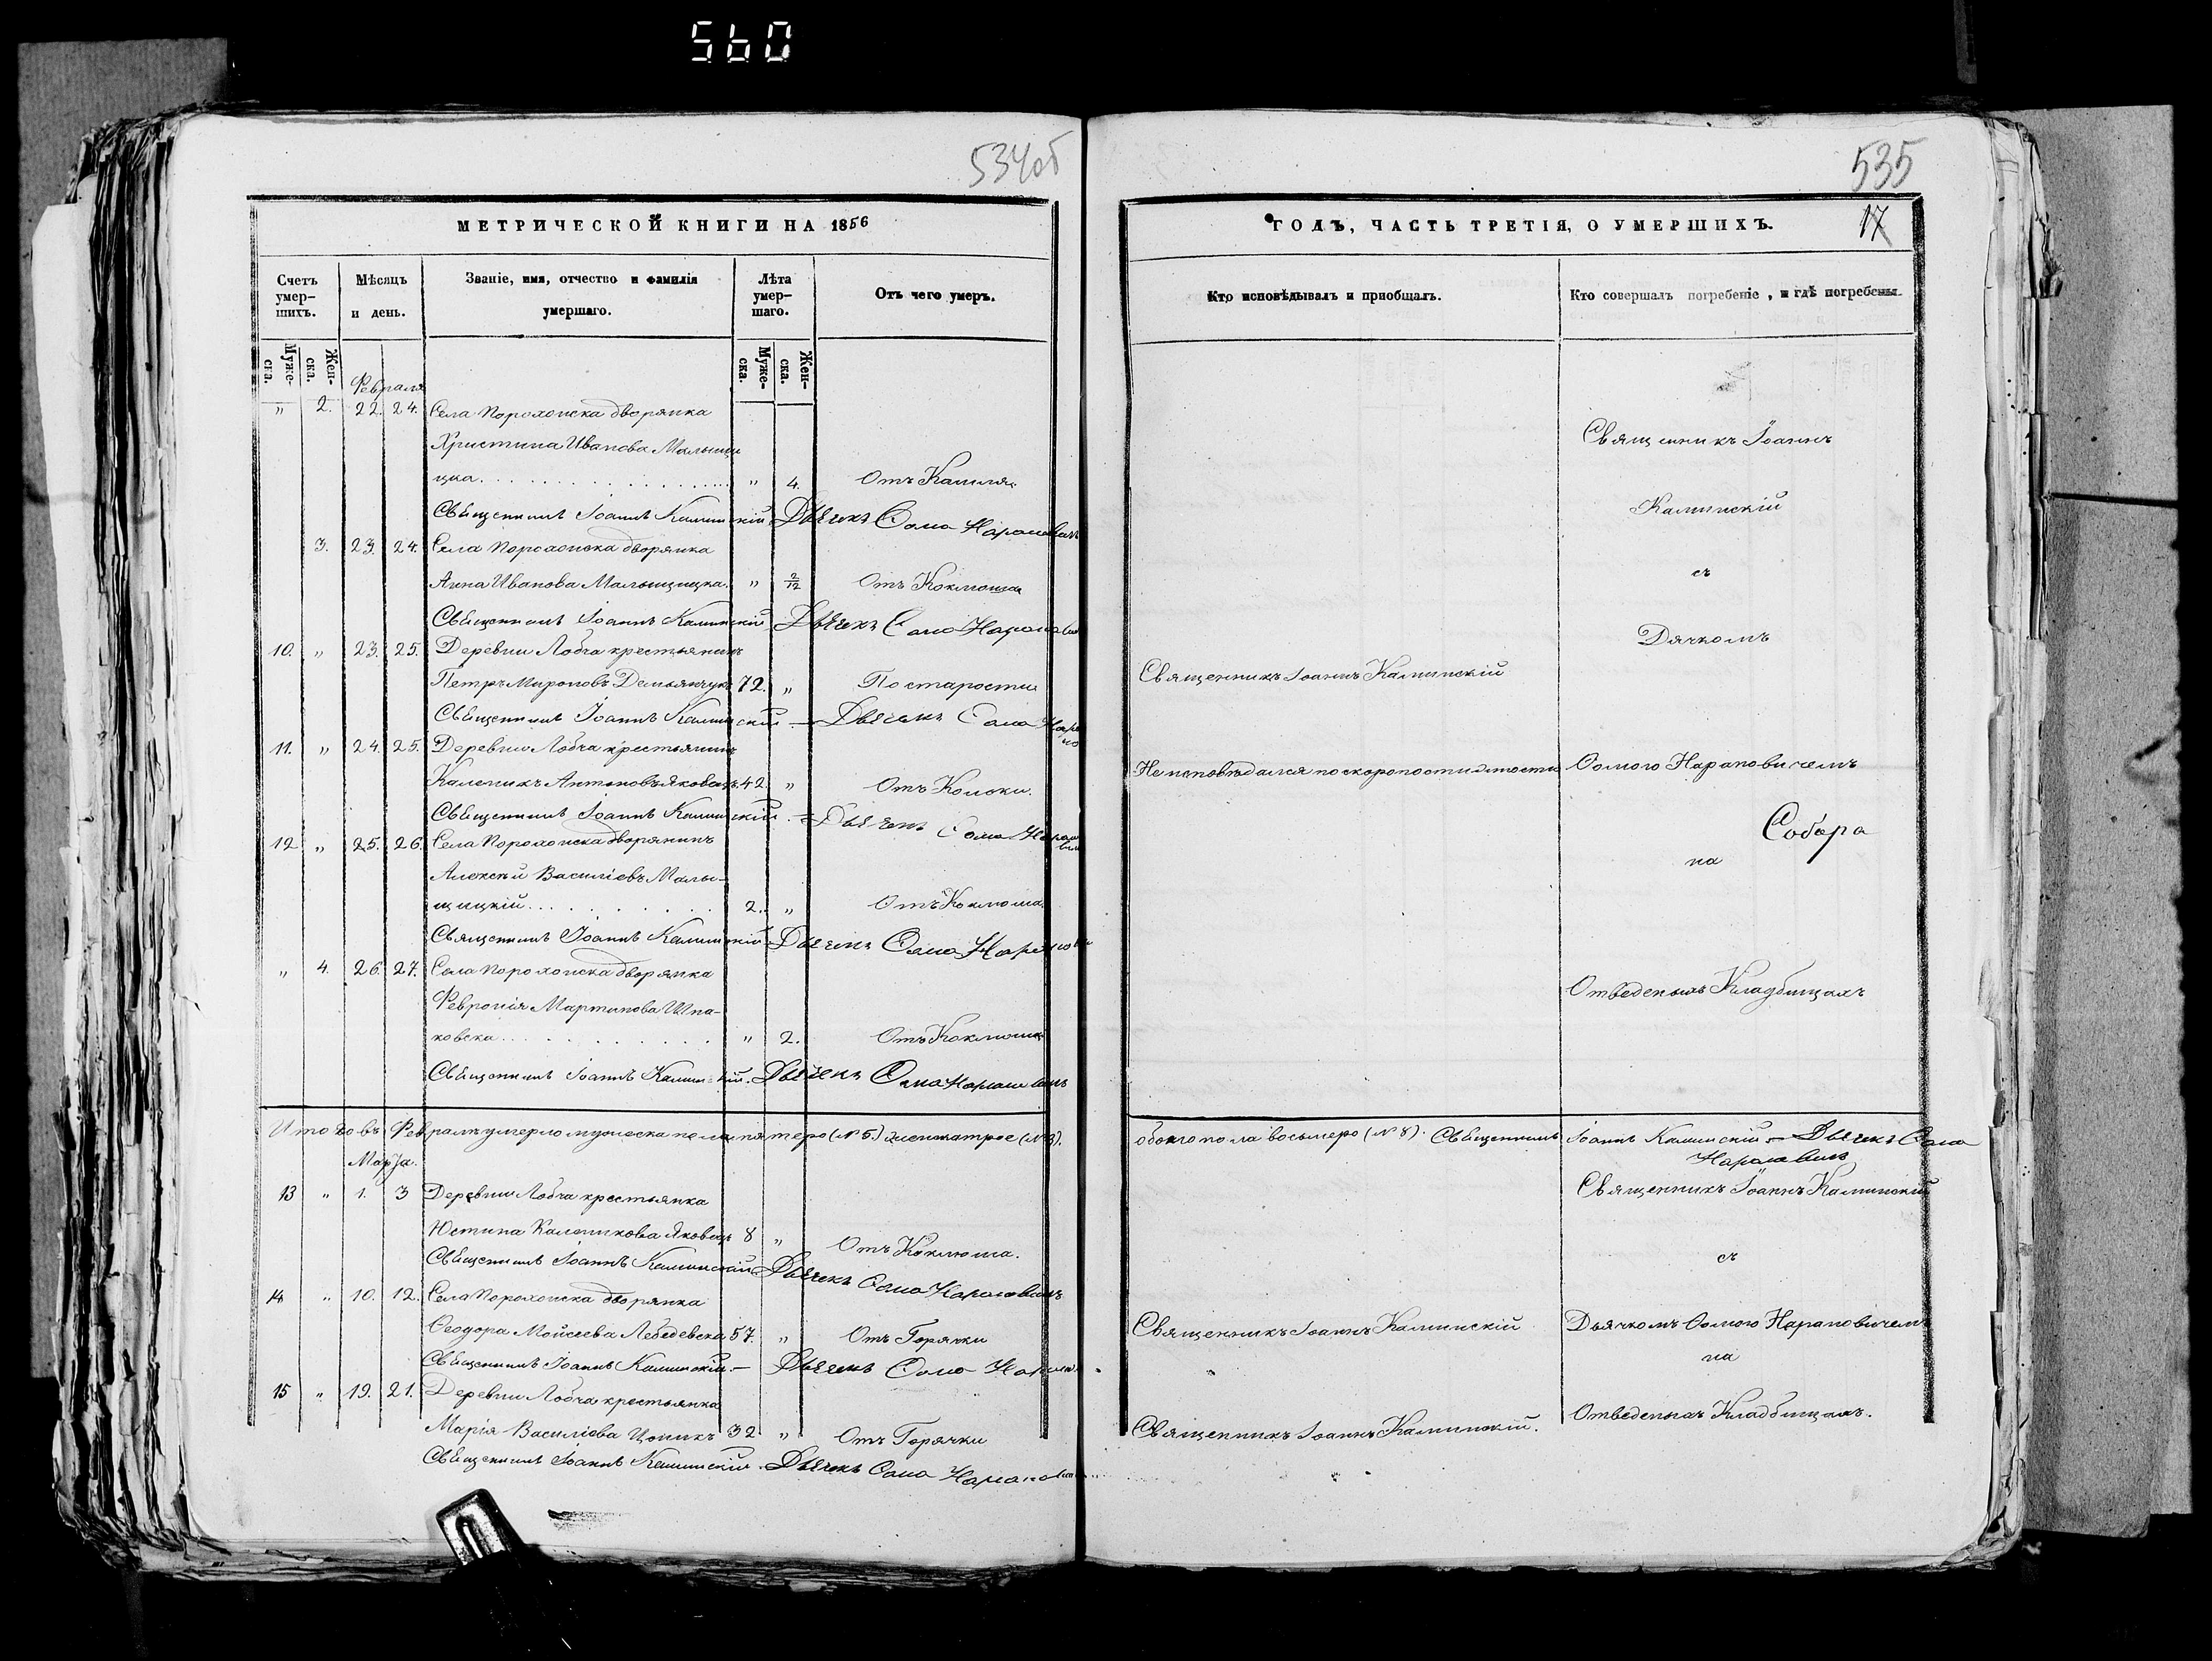 560
534об
535
17
МЕТРИЧЕСКОЙ КНИГИ НА 1856
ГОДЪ, ЧАСТЬ ТРЕТІЯ, О УМЕРШИХЪ.
Счетъ умер-шихъ.
Мѣсяцъ и день.
Званіе, имя, отчество и фамилія умершаго.
Лѣта умер-шаго.
Отъ чего умеръ.
Кто исповѣдывалъ и приобщалъ.
Кто совершалъ погребеніе, и гдѣ погребены
Муже-ска. Жен-ска. Муже-ска. Жен-ска.
Февраля
" 2. 22. 24. Села Порохонска дворянка
Христина Иванова Малыщи
цка " 4. Отъ Кашля.
Священникъ Іоаннъ
Священникъ Іоаннъ Калинскій Дьячекъ Ѳома Нарановичъ
Калинскій
3. 23. 24. Села Порохонска дворянка
Анна Иванова Малыщицка. " 2/12 Отъ Коклюша
съ
Священникъ Іоаннъ Калинскій Дьячекъ Ѳома Нарановичъ
Дячкомъ
10. " 23. 25. Деревни Лобча крестьянинъ
Петръ Мироновъ Демьянчукъ 72. " По старости
Священникъ Іоаннъ Калинскій
Священникъ Іоаннъ Калинскій — Дьячекъ Ѳома
11. " 24. 25. Деревни Лобча крестьянинъ
Каленикъ Антоновъ Яковецъ 42. " Отъ Колоки.
Не исповѣдался по скоропостижности Ѳомою Нарановичемъ
Священникъ Іоаннъ Калинскій. — Дьячекъ Ѳома
Собора
12 " 25. 26. Села Порохонска дворянинъ
на
Алексѣй Василіевъ Малы-
щицкій 2. " Отъ Коклюша.
Священникъ Іоаннъ Калинскій Дьячекъ Ѳома
" 4. 26. 27. Села Порохонска дворянка
Отведеныхъ Кладбищахъ
Февронія Мартинова Шпа-
ковска " 2. Отъ Коклюша
Священникъ Іоаннъ Калинскій. Дьячекъ Ѳома Нарановичъ
Итого въ Февралѣ умерло мужеска пола пятеро (№ 5.) женска трое (№ 3). обоего пола восьмеро (№ 8). Священникъ Іоаннъ Калинскій — Дьячекъ Ѳома
Нарановичъ
Марта.
13 " 1. 3 Деревни Лобча крестьянка
Священникъ Іоаннъ Калинскій
Юстина Каленикова Яковецъ 8 " Отъ Коклюша.
съ
Священникъ Іоаннъ Калинскій Дьячекъ Ѳома Нарановичъ
14 " 10. 12. Села Порохонска дворянка
Ѳеодора Мойсеева Лебедевска 57. " Отъ Горячки
Священникъ Іоаннъ Калинскій Дьячкомъ Ѳомою Нарановичемъ
на
Священникъ Іоаннъ Калинскій. — Дьячекъ Ѳома
15 " 19. 21. Деревни Лобча крестьянка
Отведеныхъ Кладбищахъ.
Марія Василіева Цопикъ 32 " Отъ Горячки
Священникъ Іоаннъ Калинскій.
Священникъ Іоаннъ Калинскій. Дьячекъ Ѳома Нарановичъ